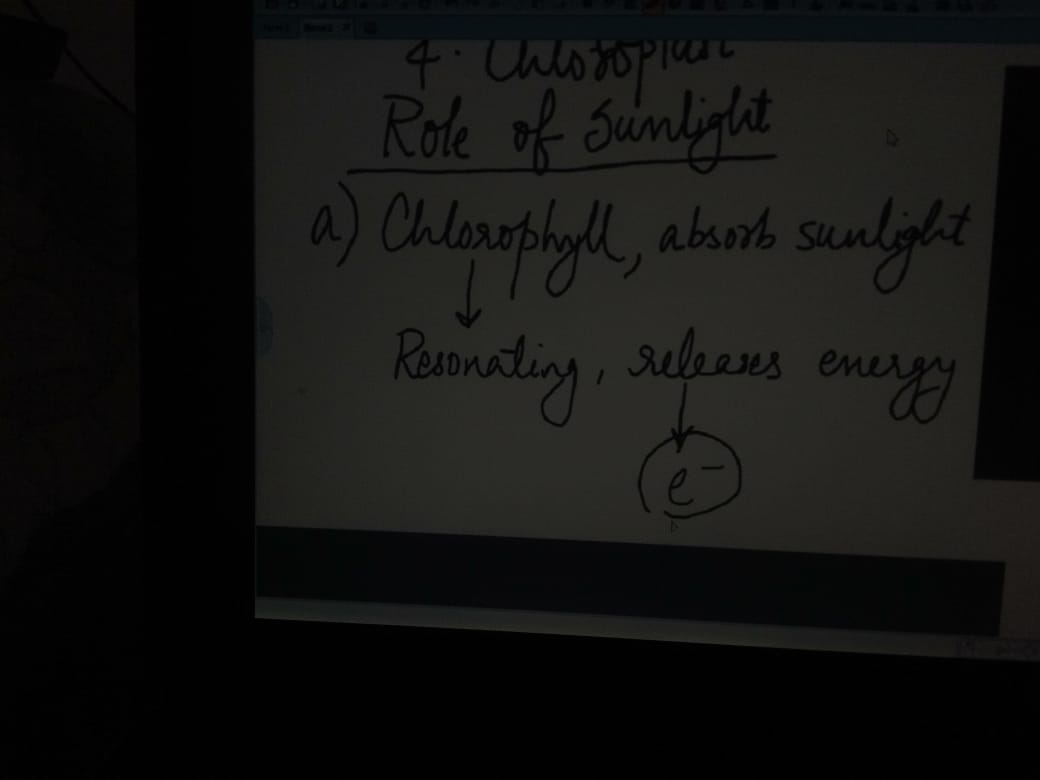 4. Chloroplast
Role of Sunlight
a) Chlorophyll, absorb sunlight
Resonating, releases energy
e⁻